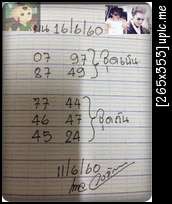 16/6/60
07 97
87 49
ชุดเน้น
77 44
46 47
45 24
ชุดกัน
11/6/60
[265x353] upic.me